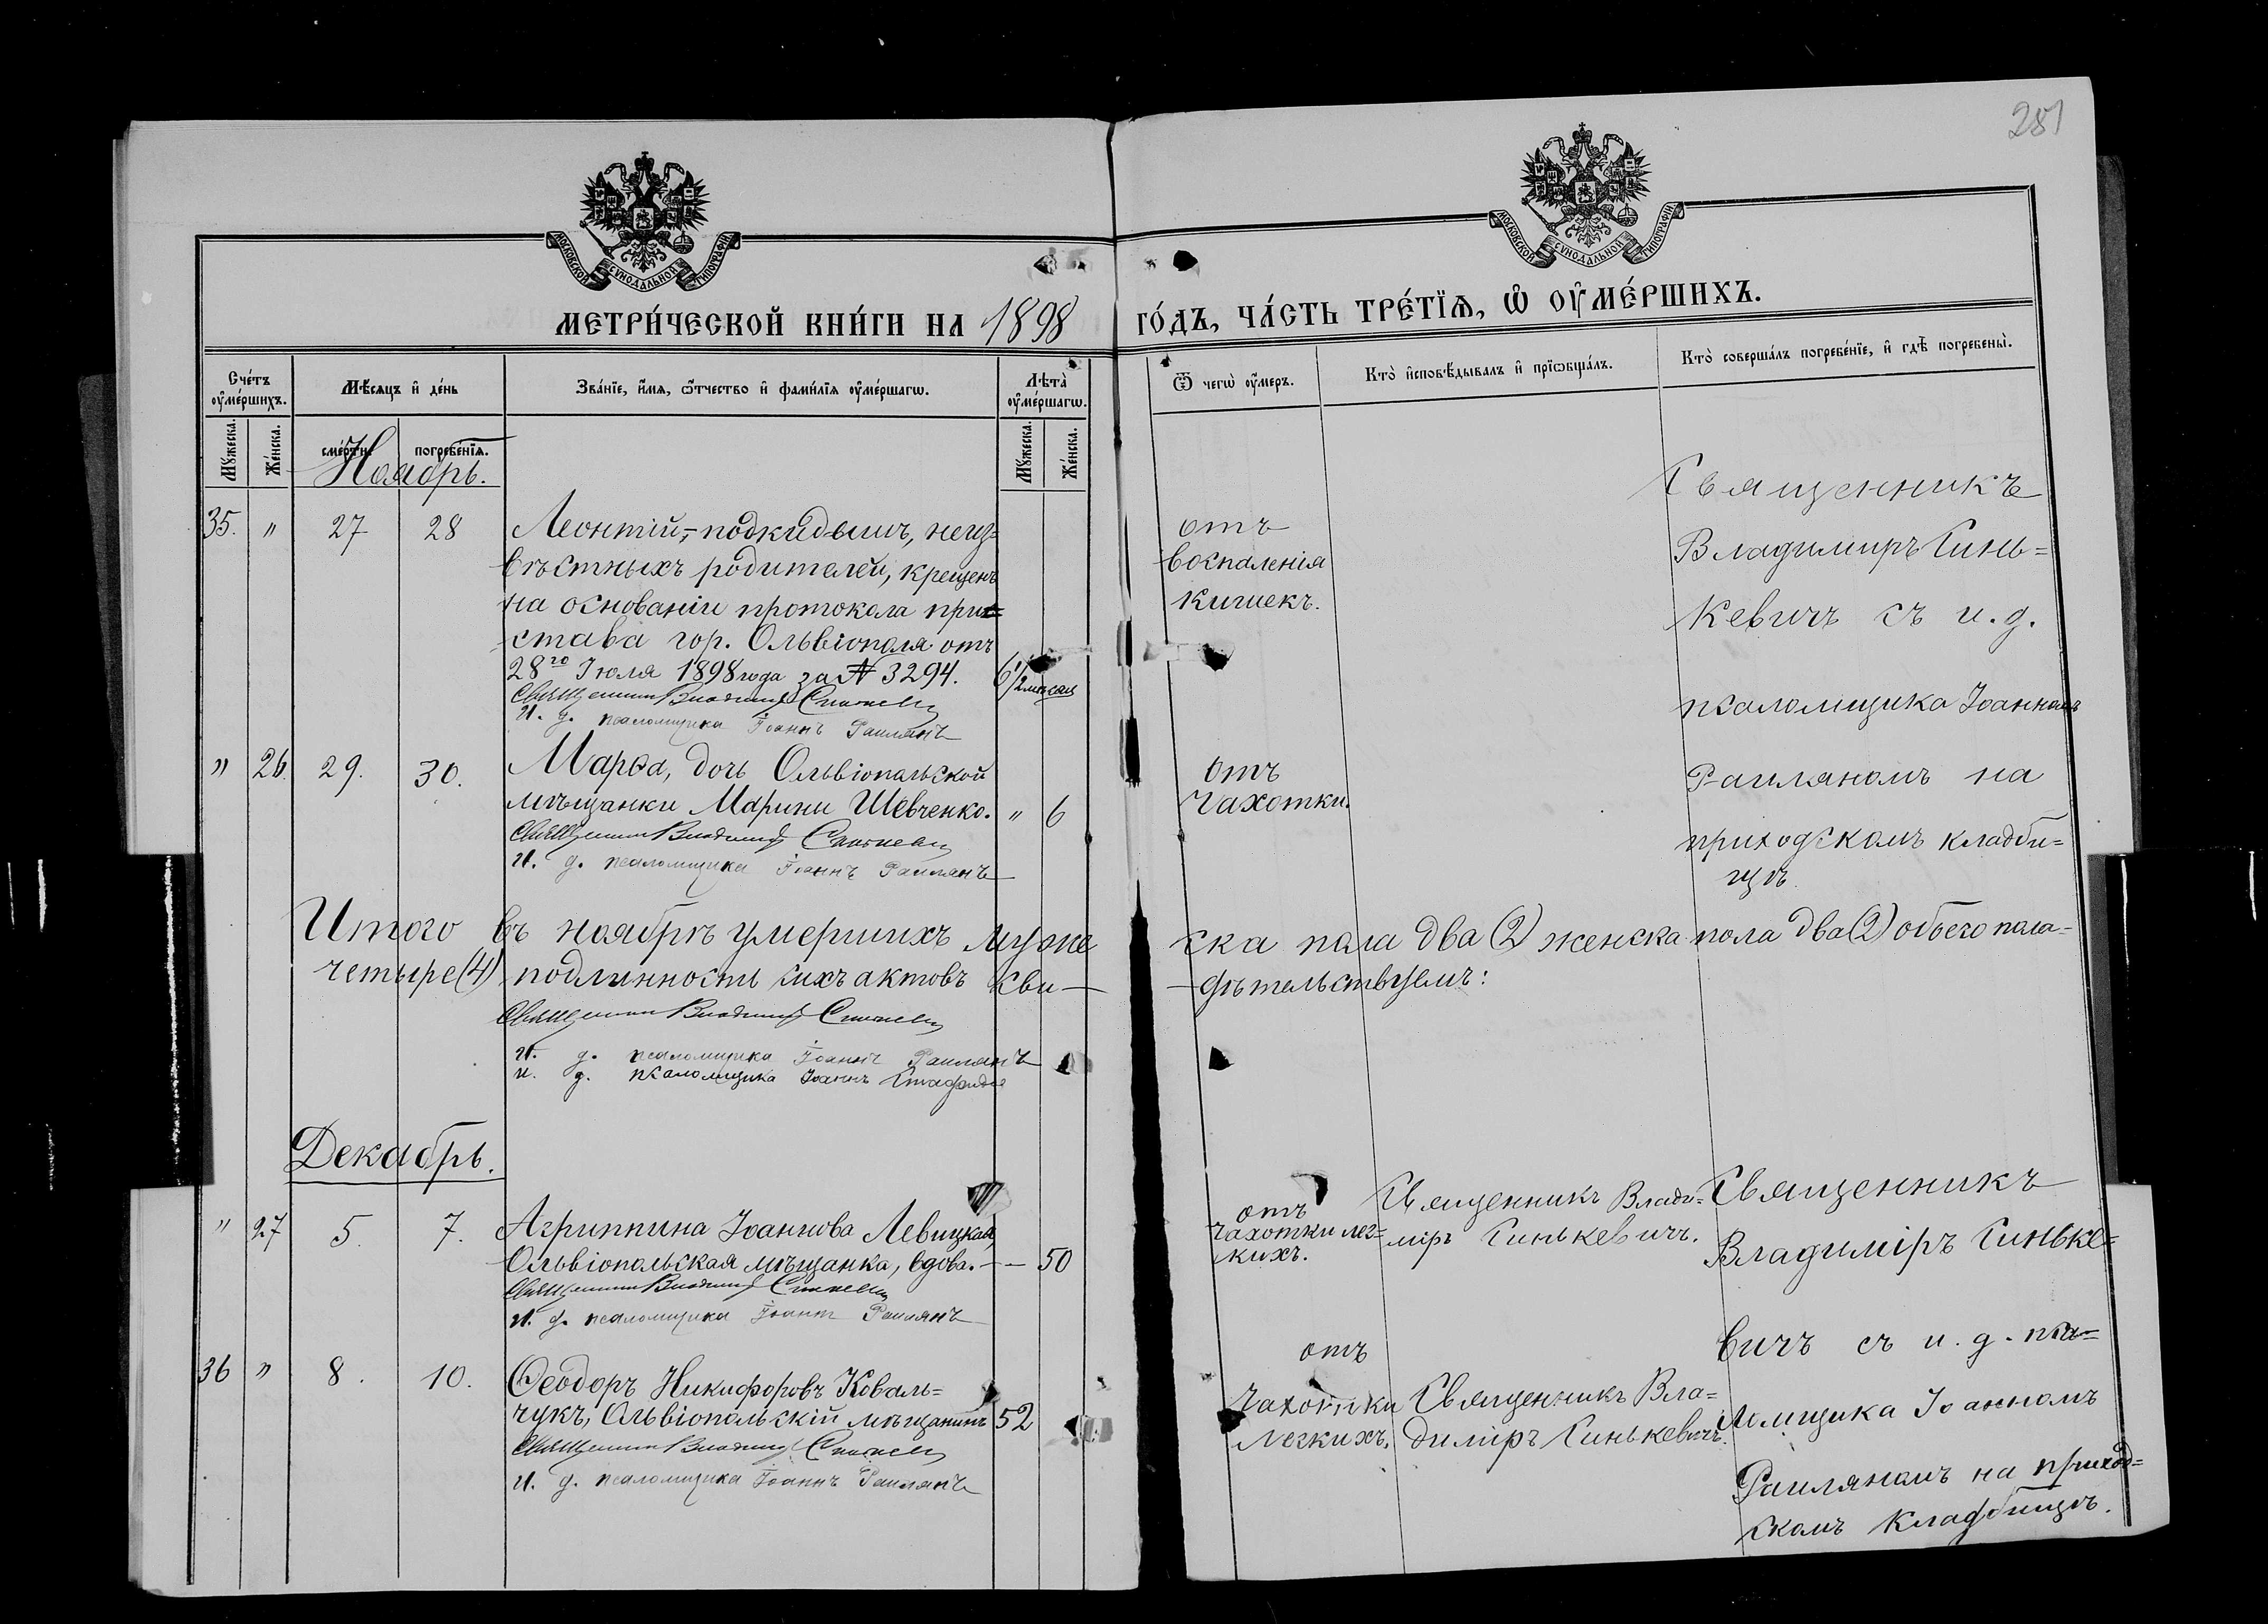 281
МОСКОВСКОЙ СУНОДАЛЬНОЙ ТИПОГРАФИИ
МОСКОВСКОЙ СУНОДАЛЬНОЙ ТИПОГРАФИИ
МЕТРИ́ЧЕСКОЙ КНИ́ГИ НА 1898
ГО́ДЪ, ЧА́СТЬ ТРЕ́ТЇѦ, Ѡ҆ ОУ҆МЕ́РШИХЪ.
Сче́тъ оу҆ме́ршихъ.
Мѣ́сяцъ и҆ де́нь
Зва́нїе, и҆́мѧ, ѻ҆́тчество и҆ фами́лїѧ оу҆ме́ршагѡ.
Лѣта̀ оу҆ме́ршагѡ.
Ѿ чегѡ̀ оу҆́меръ.
Кто̀ и҆сповѣ́дывалъ и҆ прїѡбща́лъ.
Кто̀ соверша́лъ погребе́нїе, и҆ гдѣ̀ погребены̀.
Мꙋ́жеска.
Же́нска.
сме́рти.
погребе́нїѧ.
Мꙋ́жеска.
Же́нска.
Ноябрь.
35. " 27 28
Леонтій,-подкидышъ, неиз=
вѣстныхъ родителей, крещенъ
на основаніи протокола при=
става гор. Ольвіополя отъ
28го Іюля 1898 года за № 3294. 6 1/2 мѣсяц
Священник Владимір Синькевич
И. д. псаломщика Іоаннъ Раилянъ
отъ
воспаленія
кишекъ.
Священникъ
Владимиръ Синь=
кевичъ съ и. д.
псаломщика Іоанномъ
Раиляномъ на
приходскомъ кладби=
щѣ.
" 26. 29. 30.
Марѳа, дочь Ольвіопольской
мѣщанки Марины Шевченко. " 6
Священник Владимір Синькевич
И. д. псаломщика Іоаннъ Раилянъ
отъ
Чахотки.
Итого въ ноябрѣ умершихъ муже
ска пола два (2) женска пола два (2) обоего пола=
четыре (4) подлинность сихъ актовъ сви—
—дѣтельствуемъ:
Священник Владимір Синькевич
И. д. псаломщика Іоаннъ Раилянъ
и. д. псаломщика Іоаннъ
Декабрь.
" 27 5. 7.
Агриппина Іоаннова Левицкая,
Ольвіопольская мѣщанка, вдова. — — 50
Священник Владимір Синькевич
И. д. псаломщика Іоаннъ Раилянъ
отъ
чахотки лег=
кихъ.
Священникъ Влади=
міръ Синькевичъ.
Священникъ
Владиміръ Синьке=
вичъ съ и. д. пса=
ломщика Іоанномъ
Раиляномъ на приход=
скомъ кладбищѣ.
36 " 8. 10.
Ѳеодоръ Никифоровъ Коваль=
чукъ, Ольвіопольскій мѣщанинъ 52
Священник Владимір Синькевич
И. д. псаломщика Іоаннъ Раилянъ
отъ
Чахотки
Легкихъ.
Священникъ Вла=
диміръ Синькевичъ.